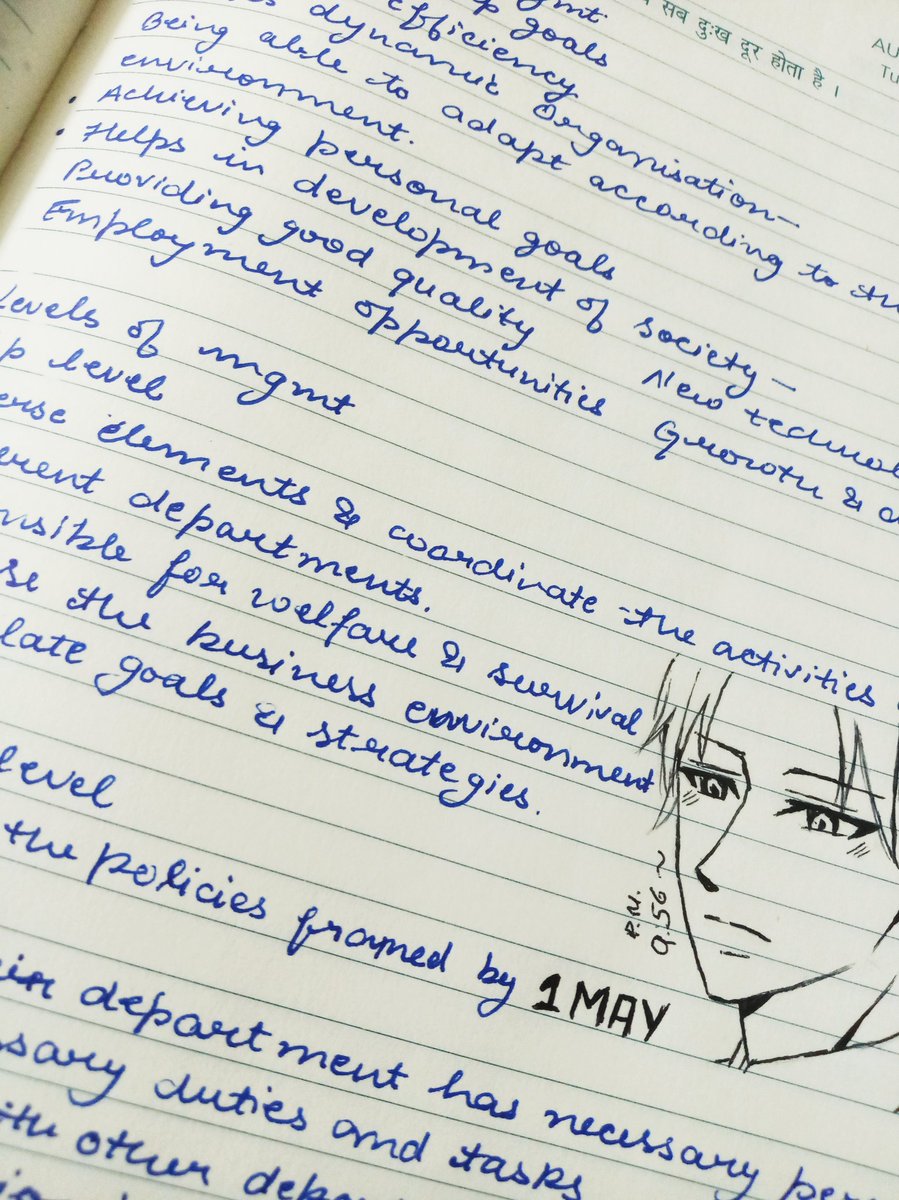 सब दुःख दूर होता है ।
AU
Tu
mgmt.
goals
efficiency
dynamic Organisation-
Being able to adapt according to the
environment.
• Achieving personal goals
• Helps in development of society-
Providing good quality New technol
Employment opportunities Growth & d
Levels of mgmt
p level
erse elements & coordinate the activities
erent departments.
nsible for welfare & survival
se the business environment
late goals & strategies.
P.N.
9.56 ~
level
the policies framed by
1 MAY
in department has necessary per
ssary duties and tasks
ith other depa